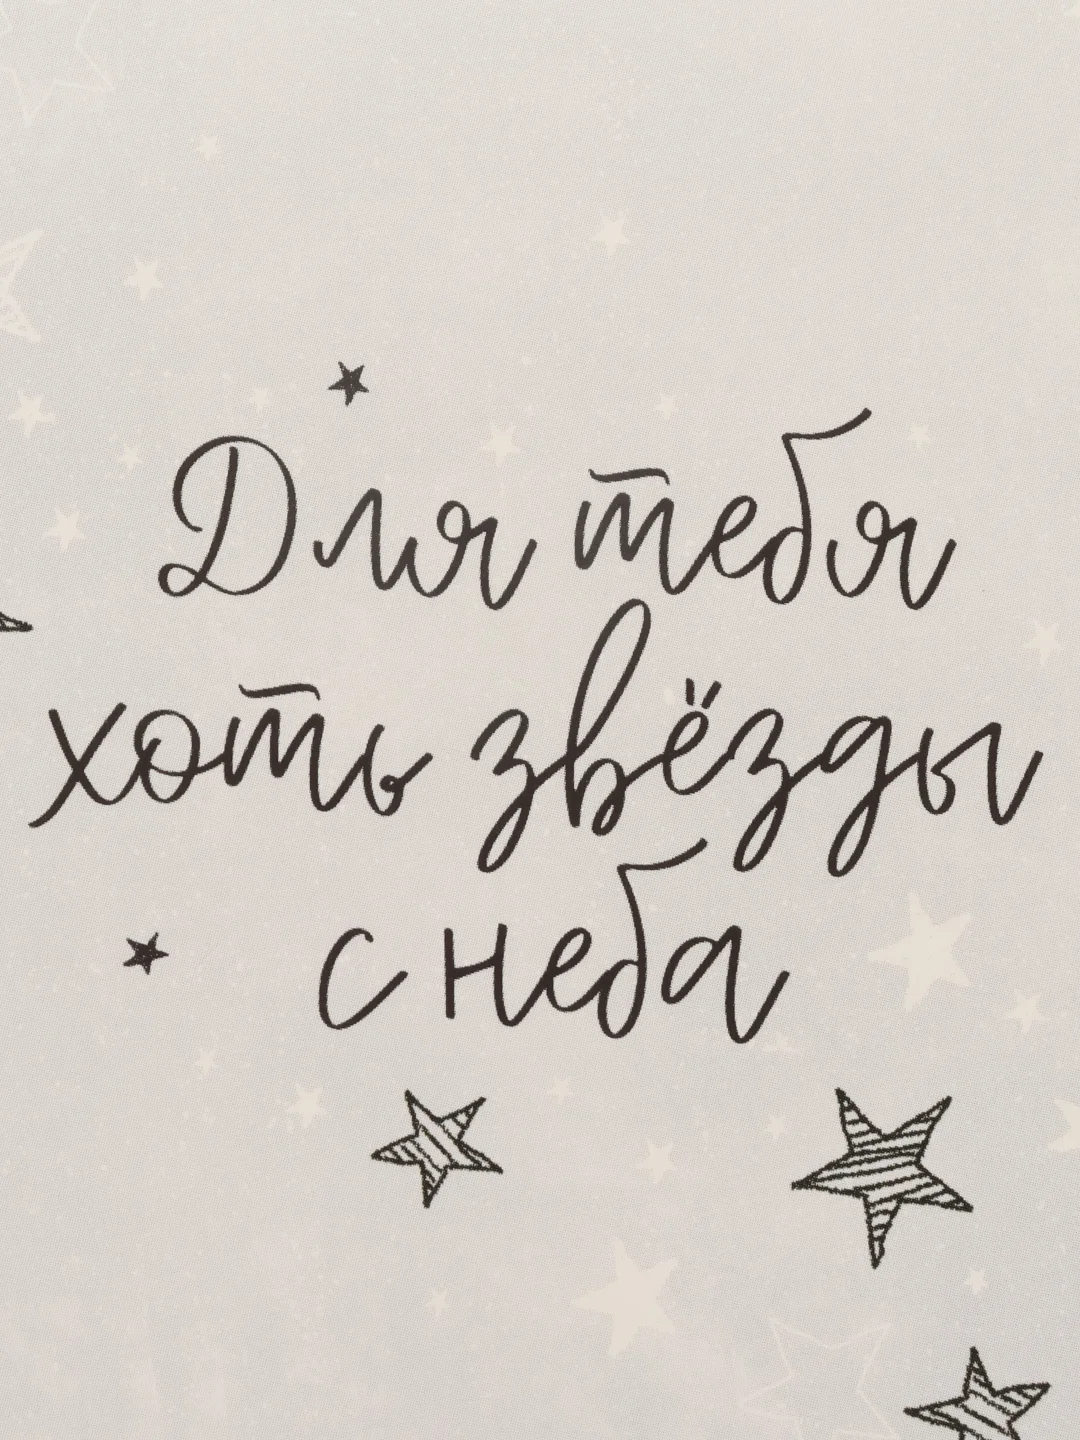 Для тебя
хоть звёзды
с неба